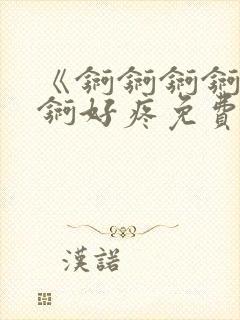 《锕锕锕锕
锕好疼免費
漢諾